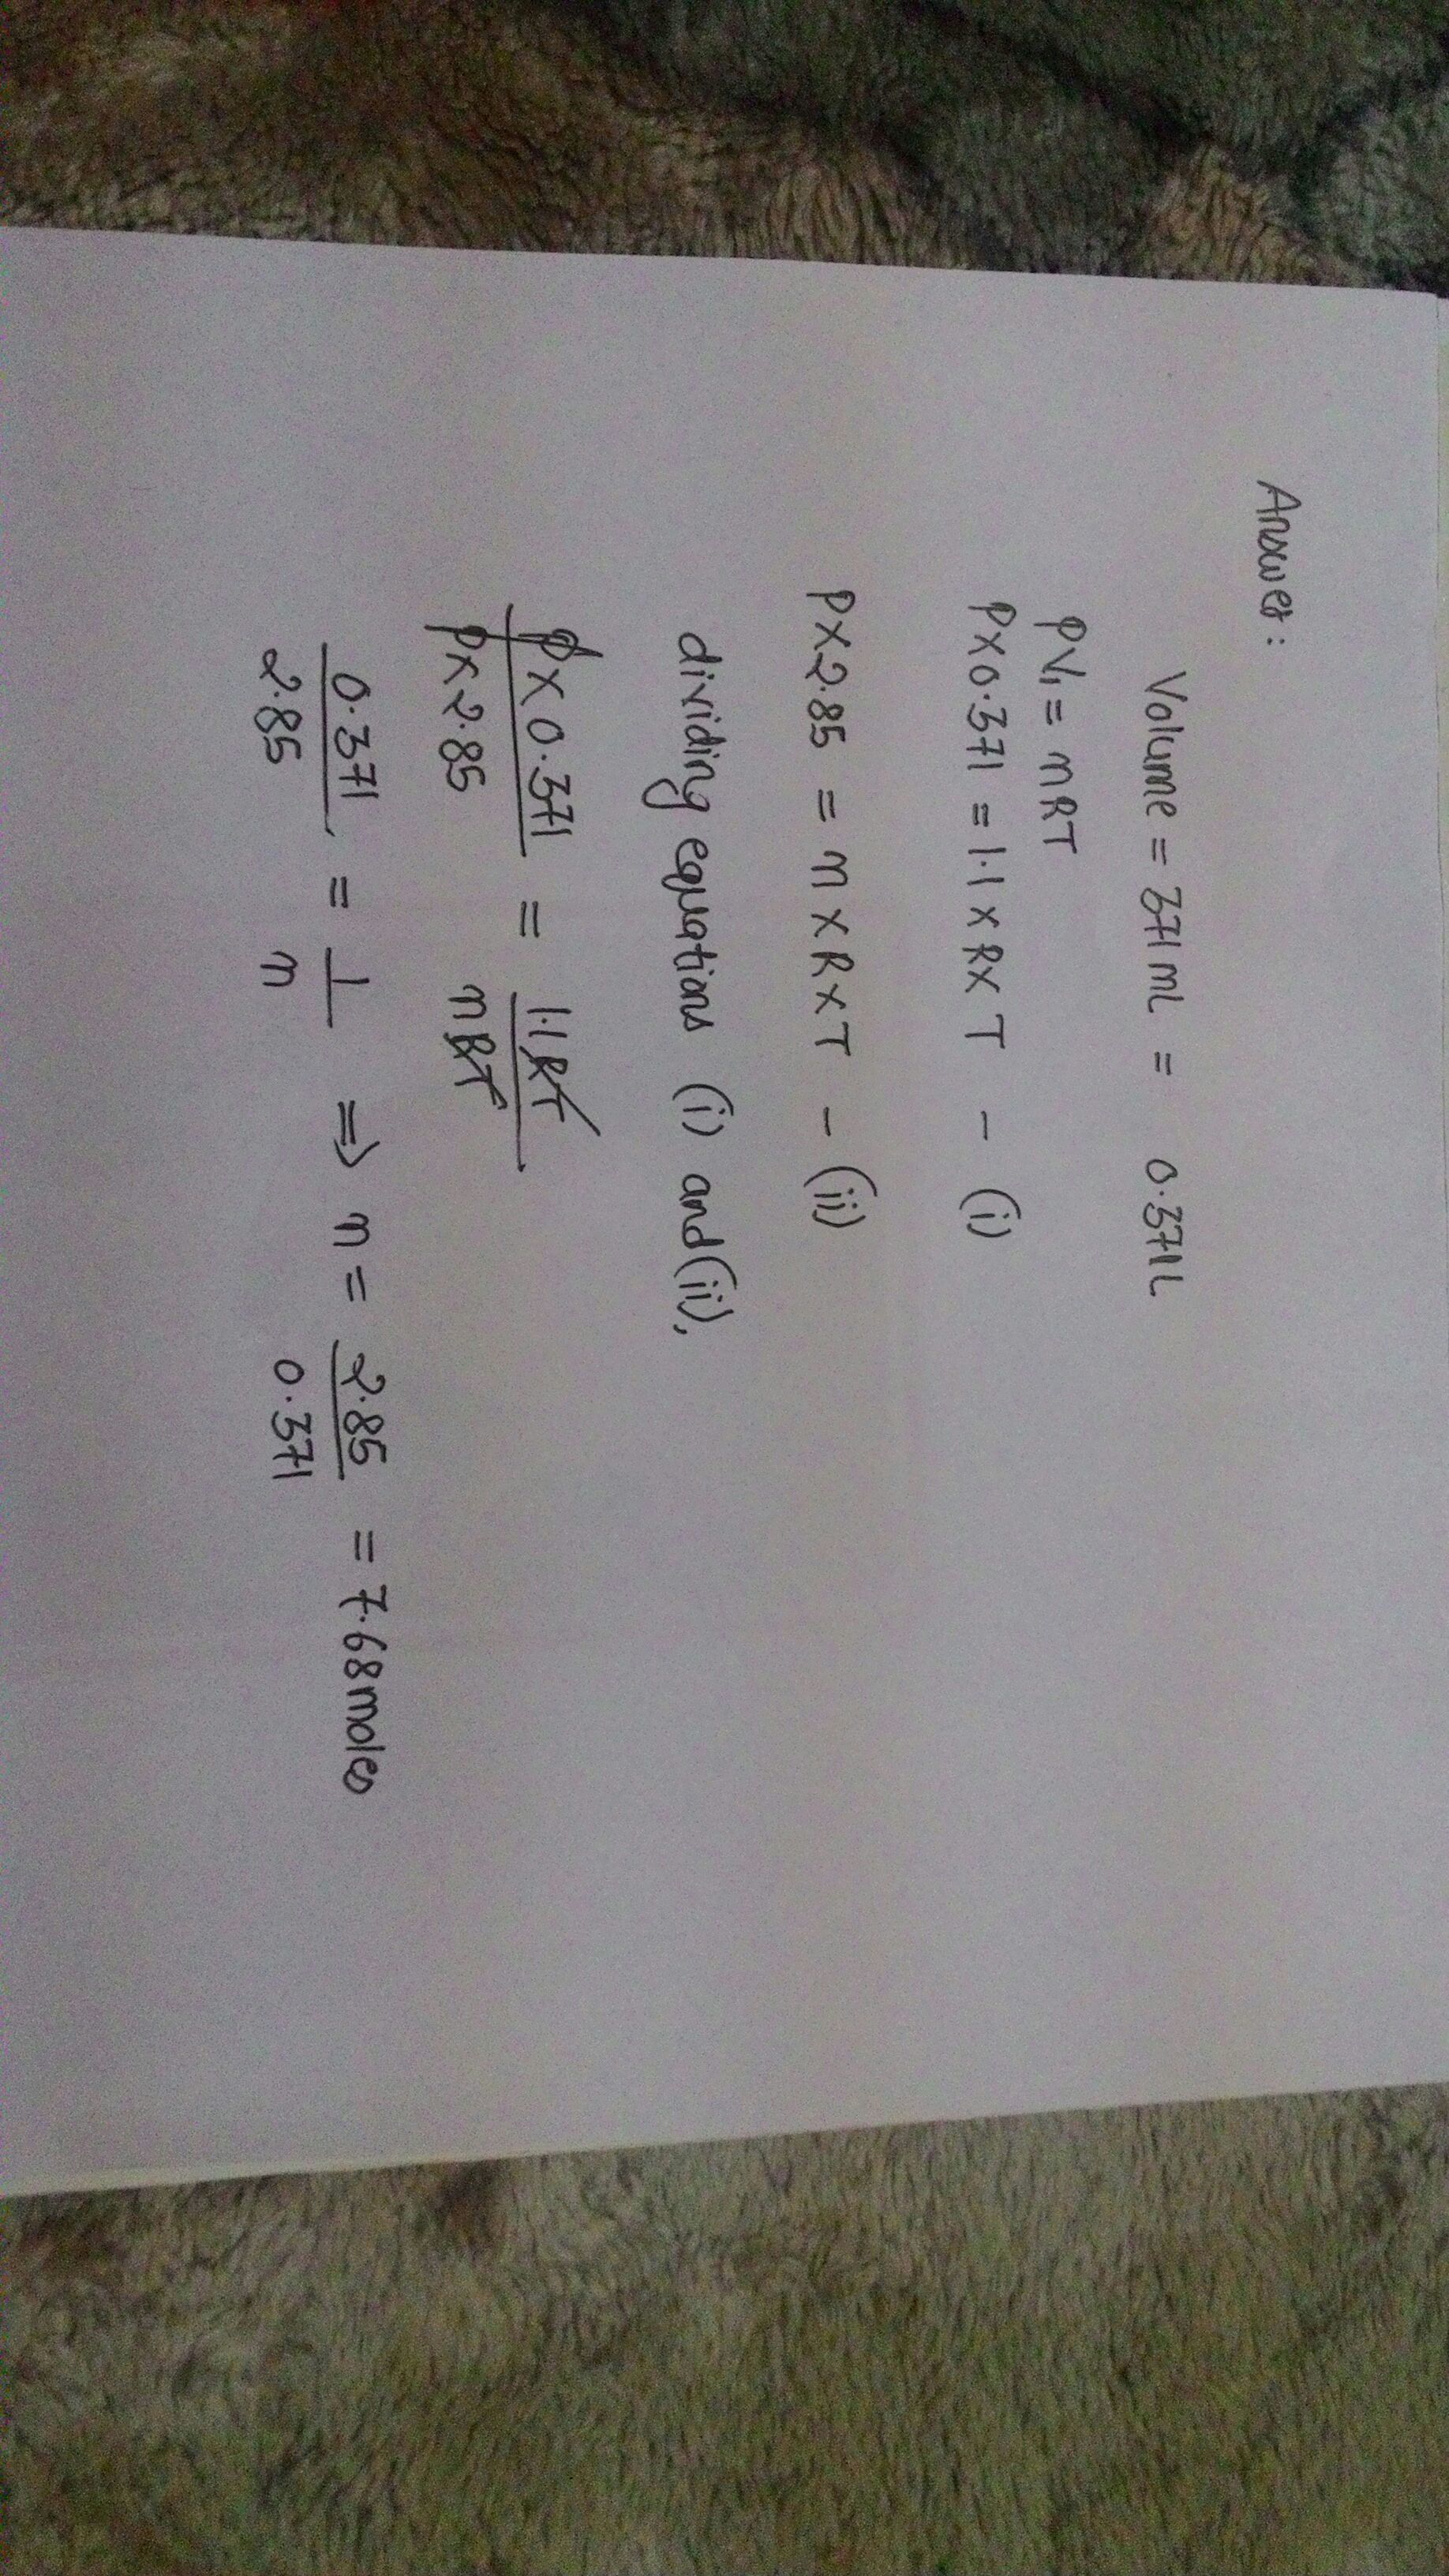 Answer:
Volume = 371 mL = 0.371L
PV₁ = nRT
P×0.371 = 1.1 × R× T – (i)
P×2.85 = n × R × T – (ii)
dividing equations (i) and (ii),
P× 0.371 / P× 2.85 = 1.1RT / nRT
0.371 / 2.85 = 1 / n ⇒ n = 2.85 / 0.371 = 7.68moles